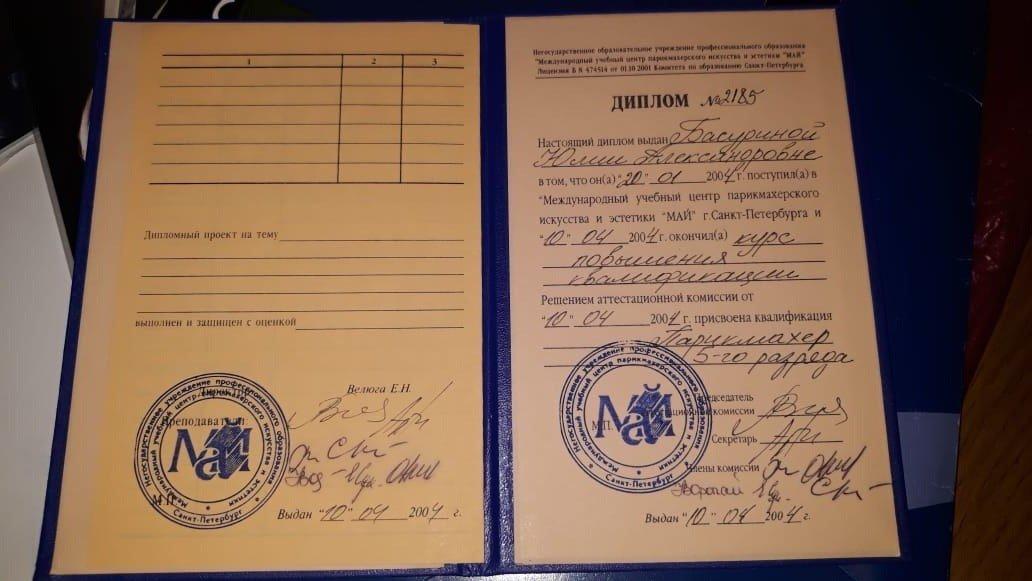 1 2 3
Дипломный проект на тему
выполнен и защищен с оценкой
Велюга Е.Н.
Преподаватели:
Негосударственное учреждение профессионального образования
Международный учебный центр парикмахерского искусства и эстетики
Май
Санкт-Петербург
М.П.
Выдан "10" 04 2004 г.
Негосударственное образовательное учреждение профессионального образования
"Международный учебный центр парикмахерского искусства и эстетики "МАЙ"
Лицензия Б N 474514 от 01.10.2001 Комитета по образованию Санкт-Петербурга
ДИПЛОМ №2185
Настоящий диплом выдан Басуриной
Юлии Александровне
в том, что он(а) "20" 01 2004 г. поступил(а) в
"Международный учебный центр парикмахерского
искусства и эстетики "МАЙ" г.Санкт-Петербурга и
"10" 04 2004 г. окончил(а) курс
повышения
квалификации
Решением аттестационной комиссии от
"10" 04 2004 г. присвоена квалификация
Парикмахер
5-го разряда
Председатель
комиссии
М.П.
Секретарь
Члены комиссии
Негосударственное учреждение профессионального образования
Международный учебный центр парикмахерского искусства и эстетики
Май
Санкт-Петербург
Выдан "10" 04 2004 г.